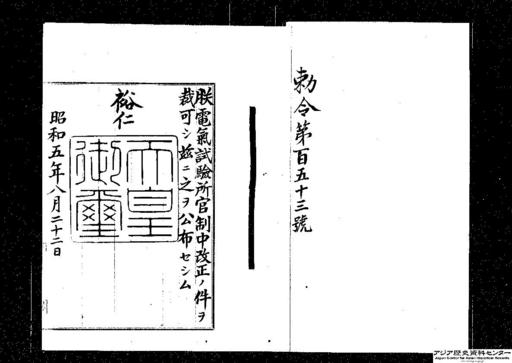 勅令第百五十三號
朕電氣試驗所官制中改正ノ件ヲ
裁可シ茲ニ之ヲ公布セシム
裕仁
天皇
御璽
昭和五年八月二十二日
アジア歴史資料センター
Japan Center for Asian Historical Records